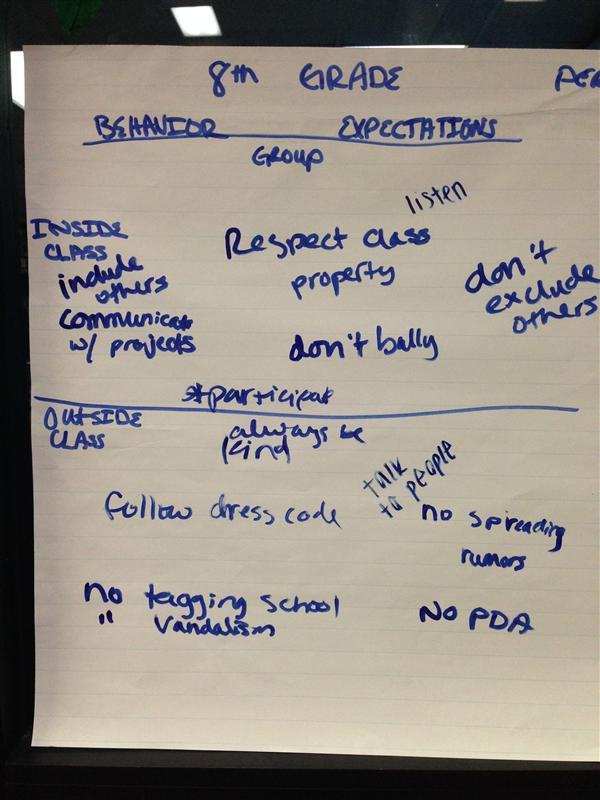 8th GRADE PER
BEHAVIOR EXPECTATIONS
GROUP
INSIDE
CLASS
include
others
communicate
w/ projects
listen
Respect class
property
don't
exclude
others
don't bully
*participat
OUTSIDE
CLASS
always be
kind
talk
to people
follow dress code
no spreading
rumors
no tagging school
" vandalism
NO PDA